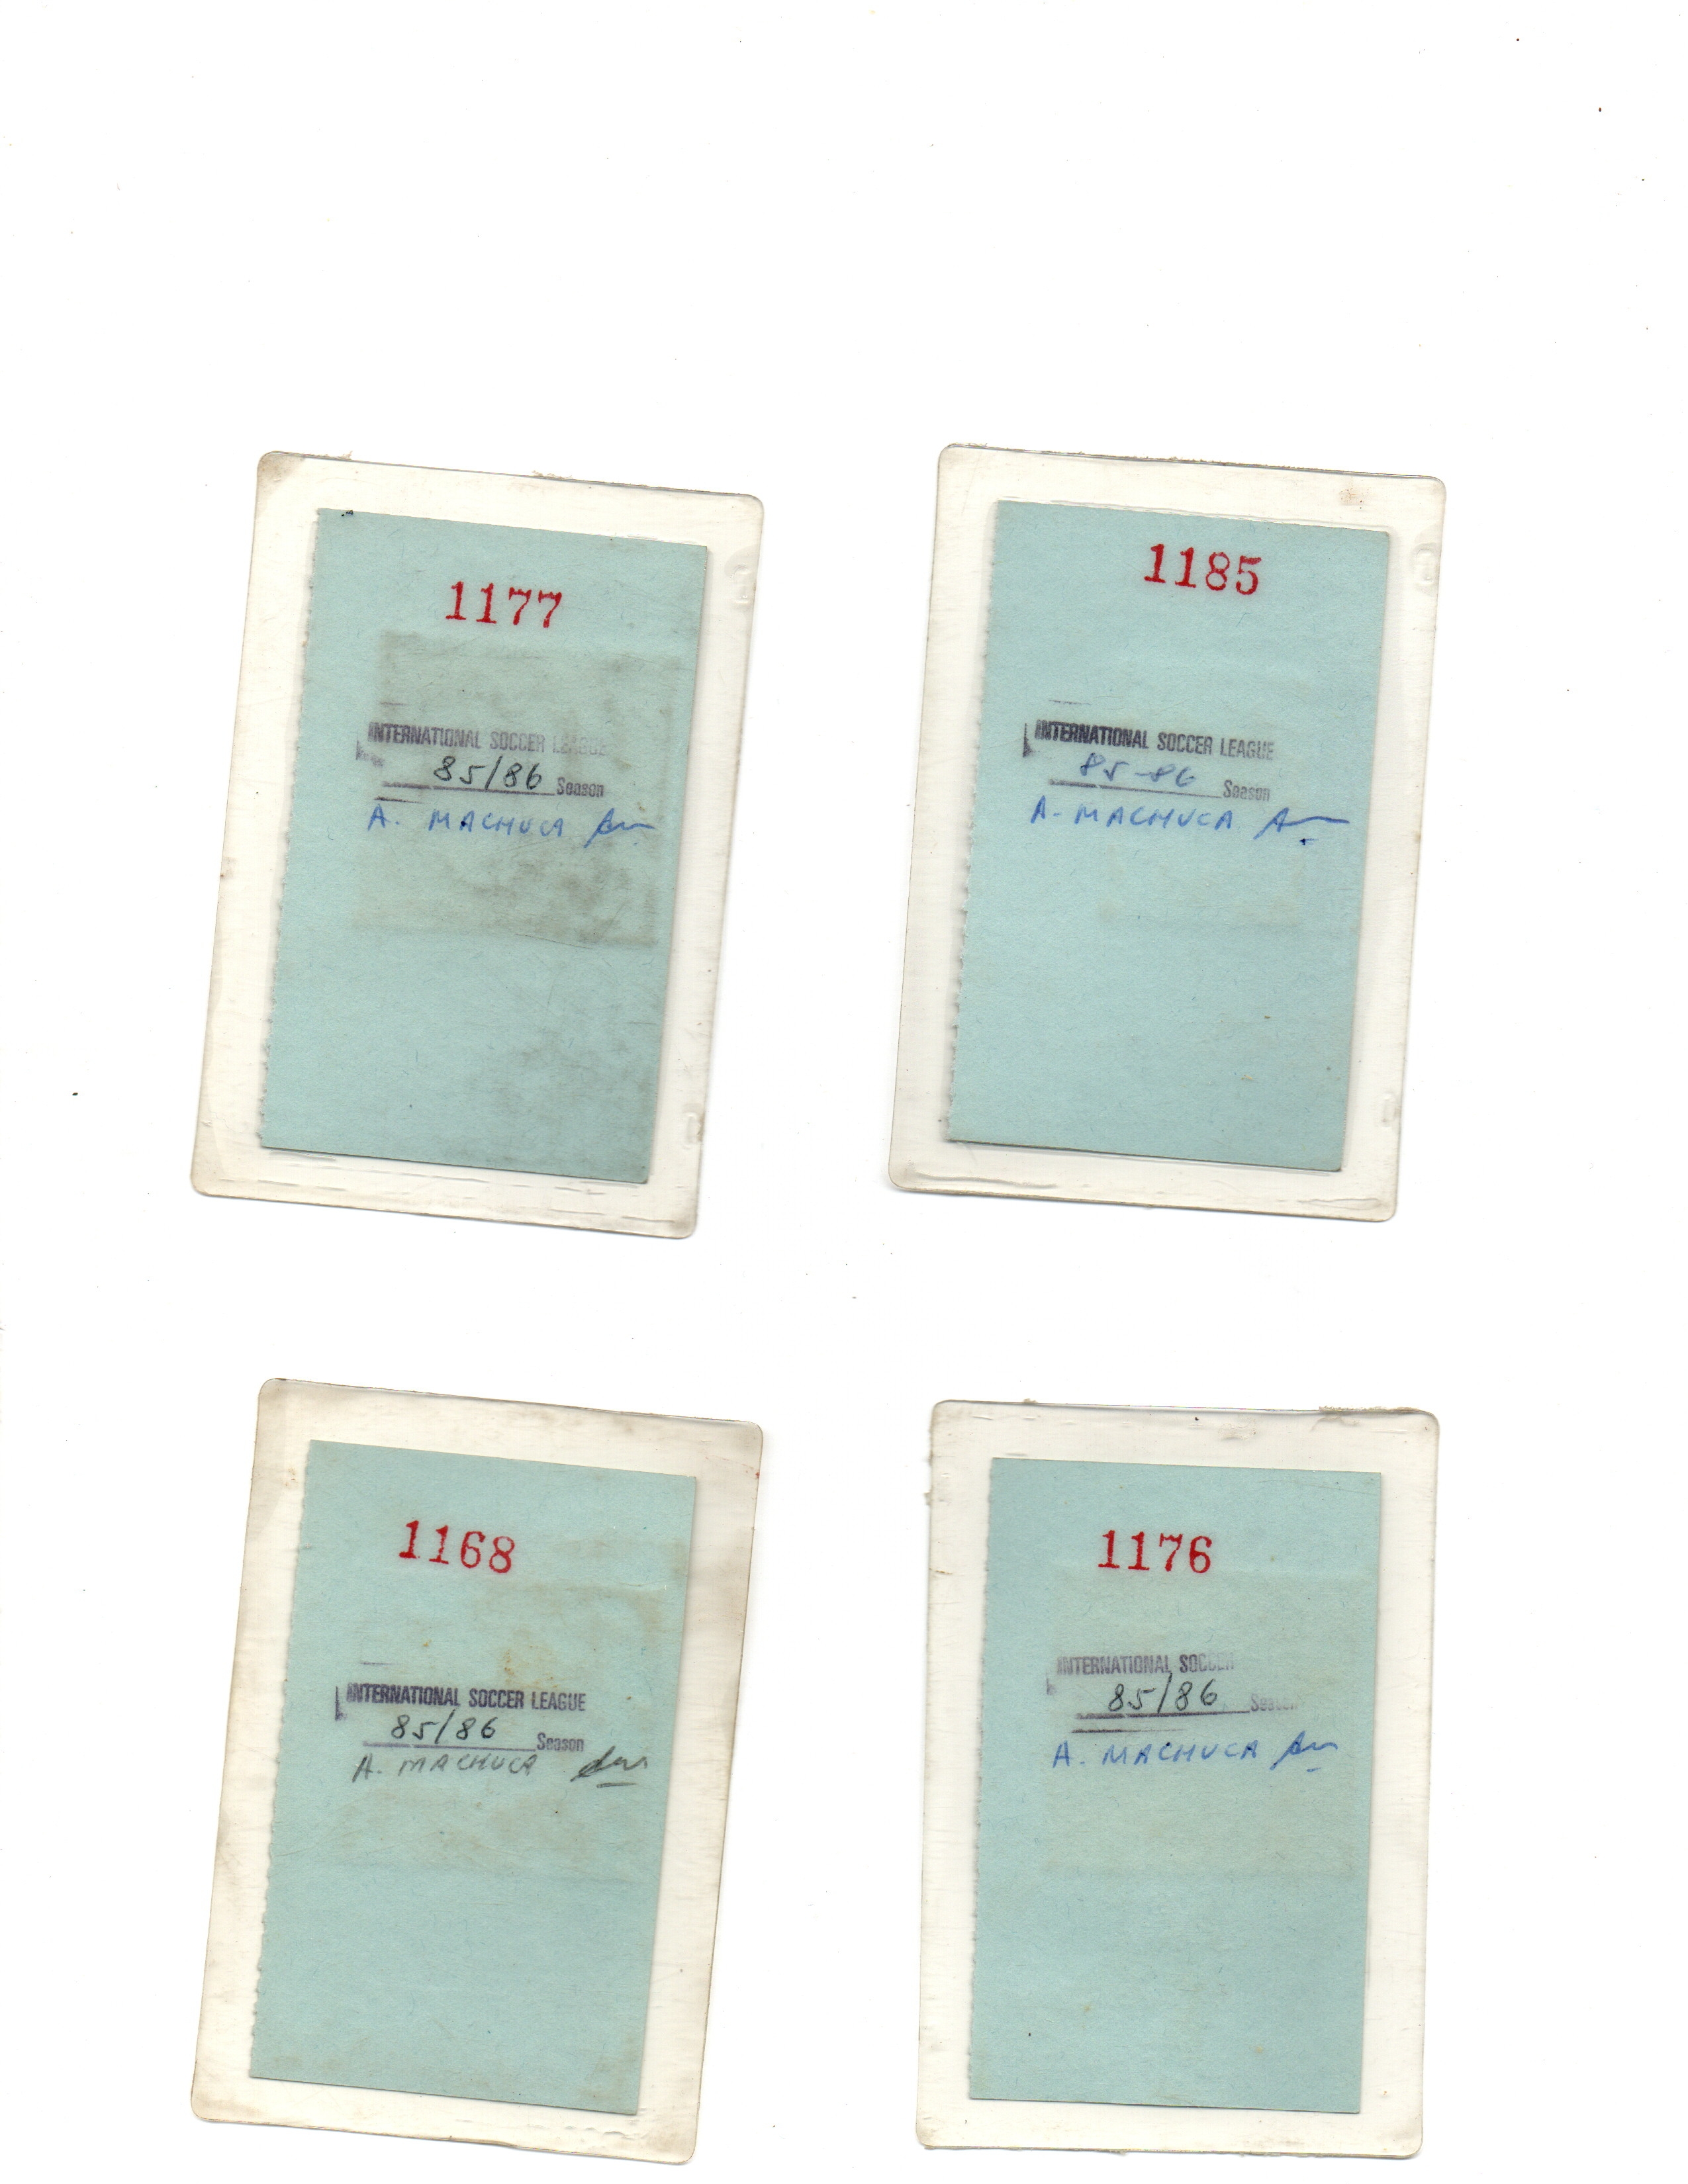 1177
INTERNATIONAL SOCCER LEAGUE
85/86 Season
A. MACHUCA
1185
INTERNATIONAL SOCCER LEAGUE
85-86 Season
A. MACHUCA
1168
INTERNATIONAL SOCCER LEAGUE
85/86 Season
A. MACHUCA
1176
INTERNATIONAL SOCCER
85/86 Season
A. MACHUCA